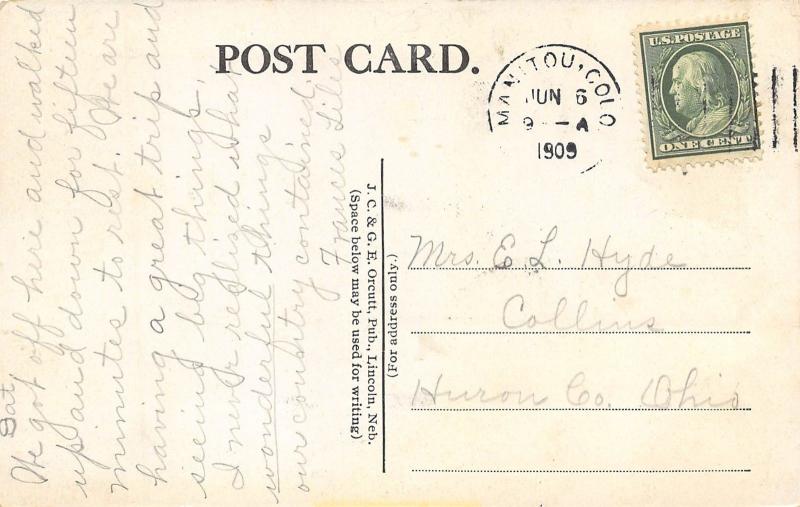 POST CARD.
MANITOU, COLO
JUN 6
9 - A
1909
U.S. POSTAGE
ONE CENT
Sat
We got off here and walked
up and down for fifteen
minutes to rest. We are
having a great trip and
seeing big things.
I never realized what
wonderful things
our country contained.
Frances
J. C. & G. E. Orcutt, Pub., Lincoln, Neb.
(Space below may be used for writing)
(For address only.)
Mrs. E. L. Hyde
Collins
Huron Co. Ohio